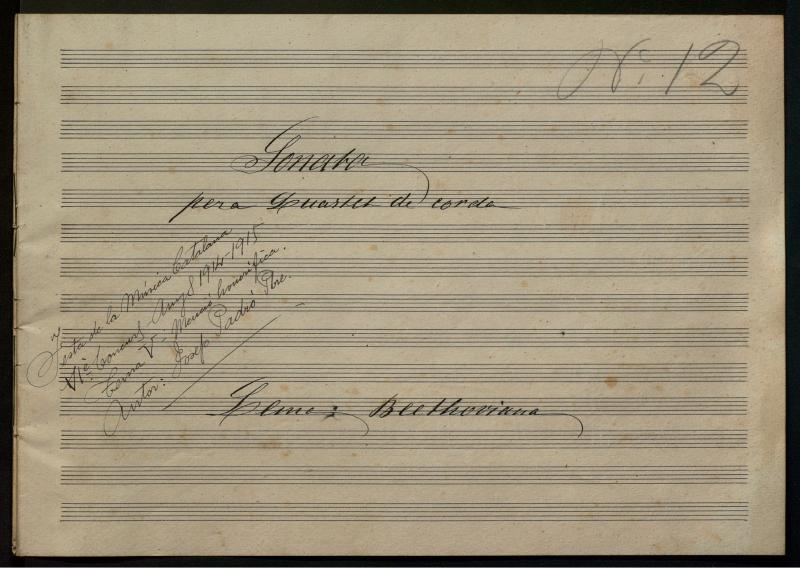 Nº 12
Sonata
pera Quartet de corda
Festa de la Música Catalana
VIè Concurs - Anys 1914-1915
Tema V - Menció honorífica.
Autor: Josep Padró Pbre.
Lema: Beethoviana